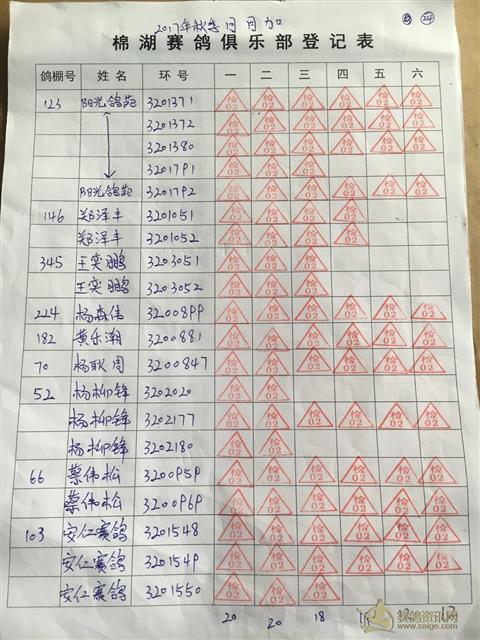 2017年秋季 月月加 24
棉湖赛鸽俱乐部登记表
鸽棚号 姓名 环号 一 二 三 四 五 六
123 阳光鸽苑 3201371 检02 检02 检02 检02 检02 检02
3201372 检02 检02 检02 检02 检02 检02
3201380 检02 检02 检02 检02 检02 检02
3201791 检02 检02 检02
阳光鸽苑 3201792 检02 检02 检02 检02 检02 检02
146 郑泽丰 3201051 检02 检02 检02 检02
郑泽丰 3201052 检02 检02 检02 检02
345 王奕鹏 3203051 检02 检02 检02
王奕鹏 3203052 检02 检02 检02
224 杨森伟 3200899 检02 检02 检02 检02 检02 检02
182 黄乐潮 3200881 检02 检02 检02 检02 检02 检02
70 杨耿周 3200847 检02 检02 检02 检02 检02 检02
52 杨柳锋 3202020 检02 检02
杨柳锋 3202177 检02 检02 检02 检02 检02 检02
杨柳锋 3202180 检02 检02
66 蔡伟松 3200959 检02 检02 检02 检02 检02 检02
蔡伟松 3200969 检02 检02 检02 检02 检02 检02
103 安仁赛鸽 3201548 检02 检02 检02 检02 检02 检02
安仁赛鸽 3201549 检02 检02 检02 检02 检02 检02
安仁赛鸽 3201550 检02 检02 检02
20 20 18
www.saige.com